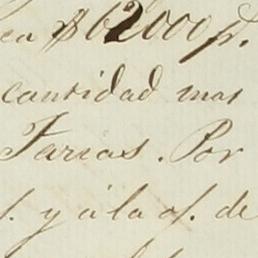 ca $62000 p.
cantidad mas
Farias. Por
f. y á la of. de